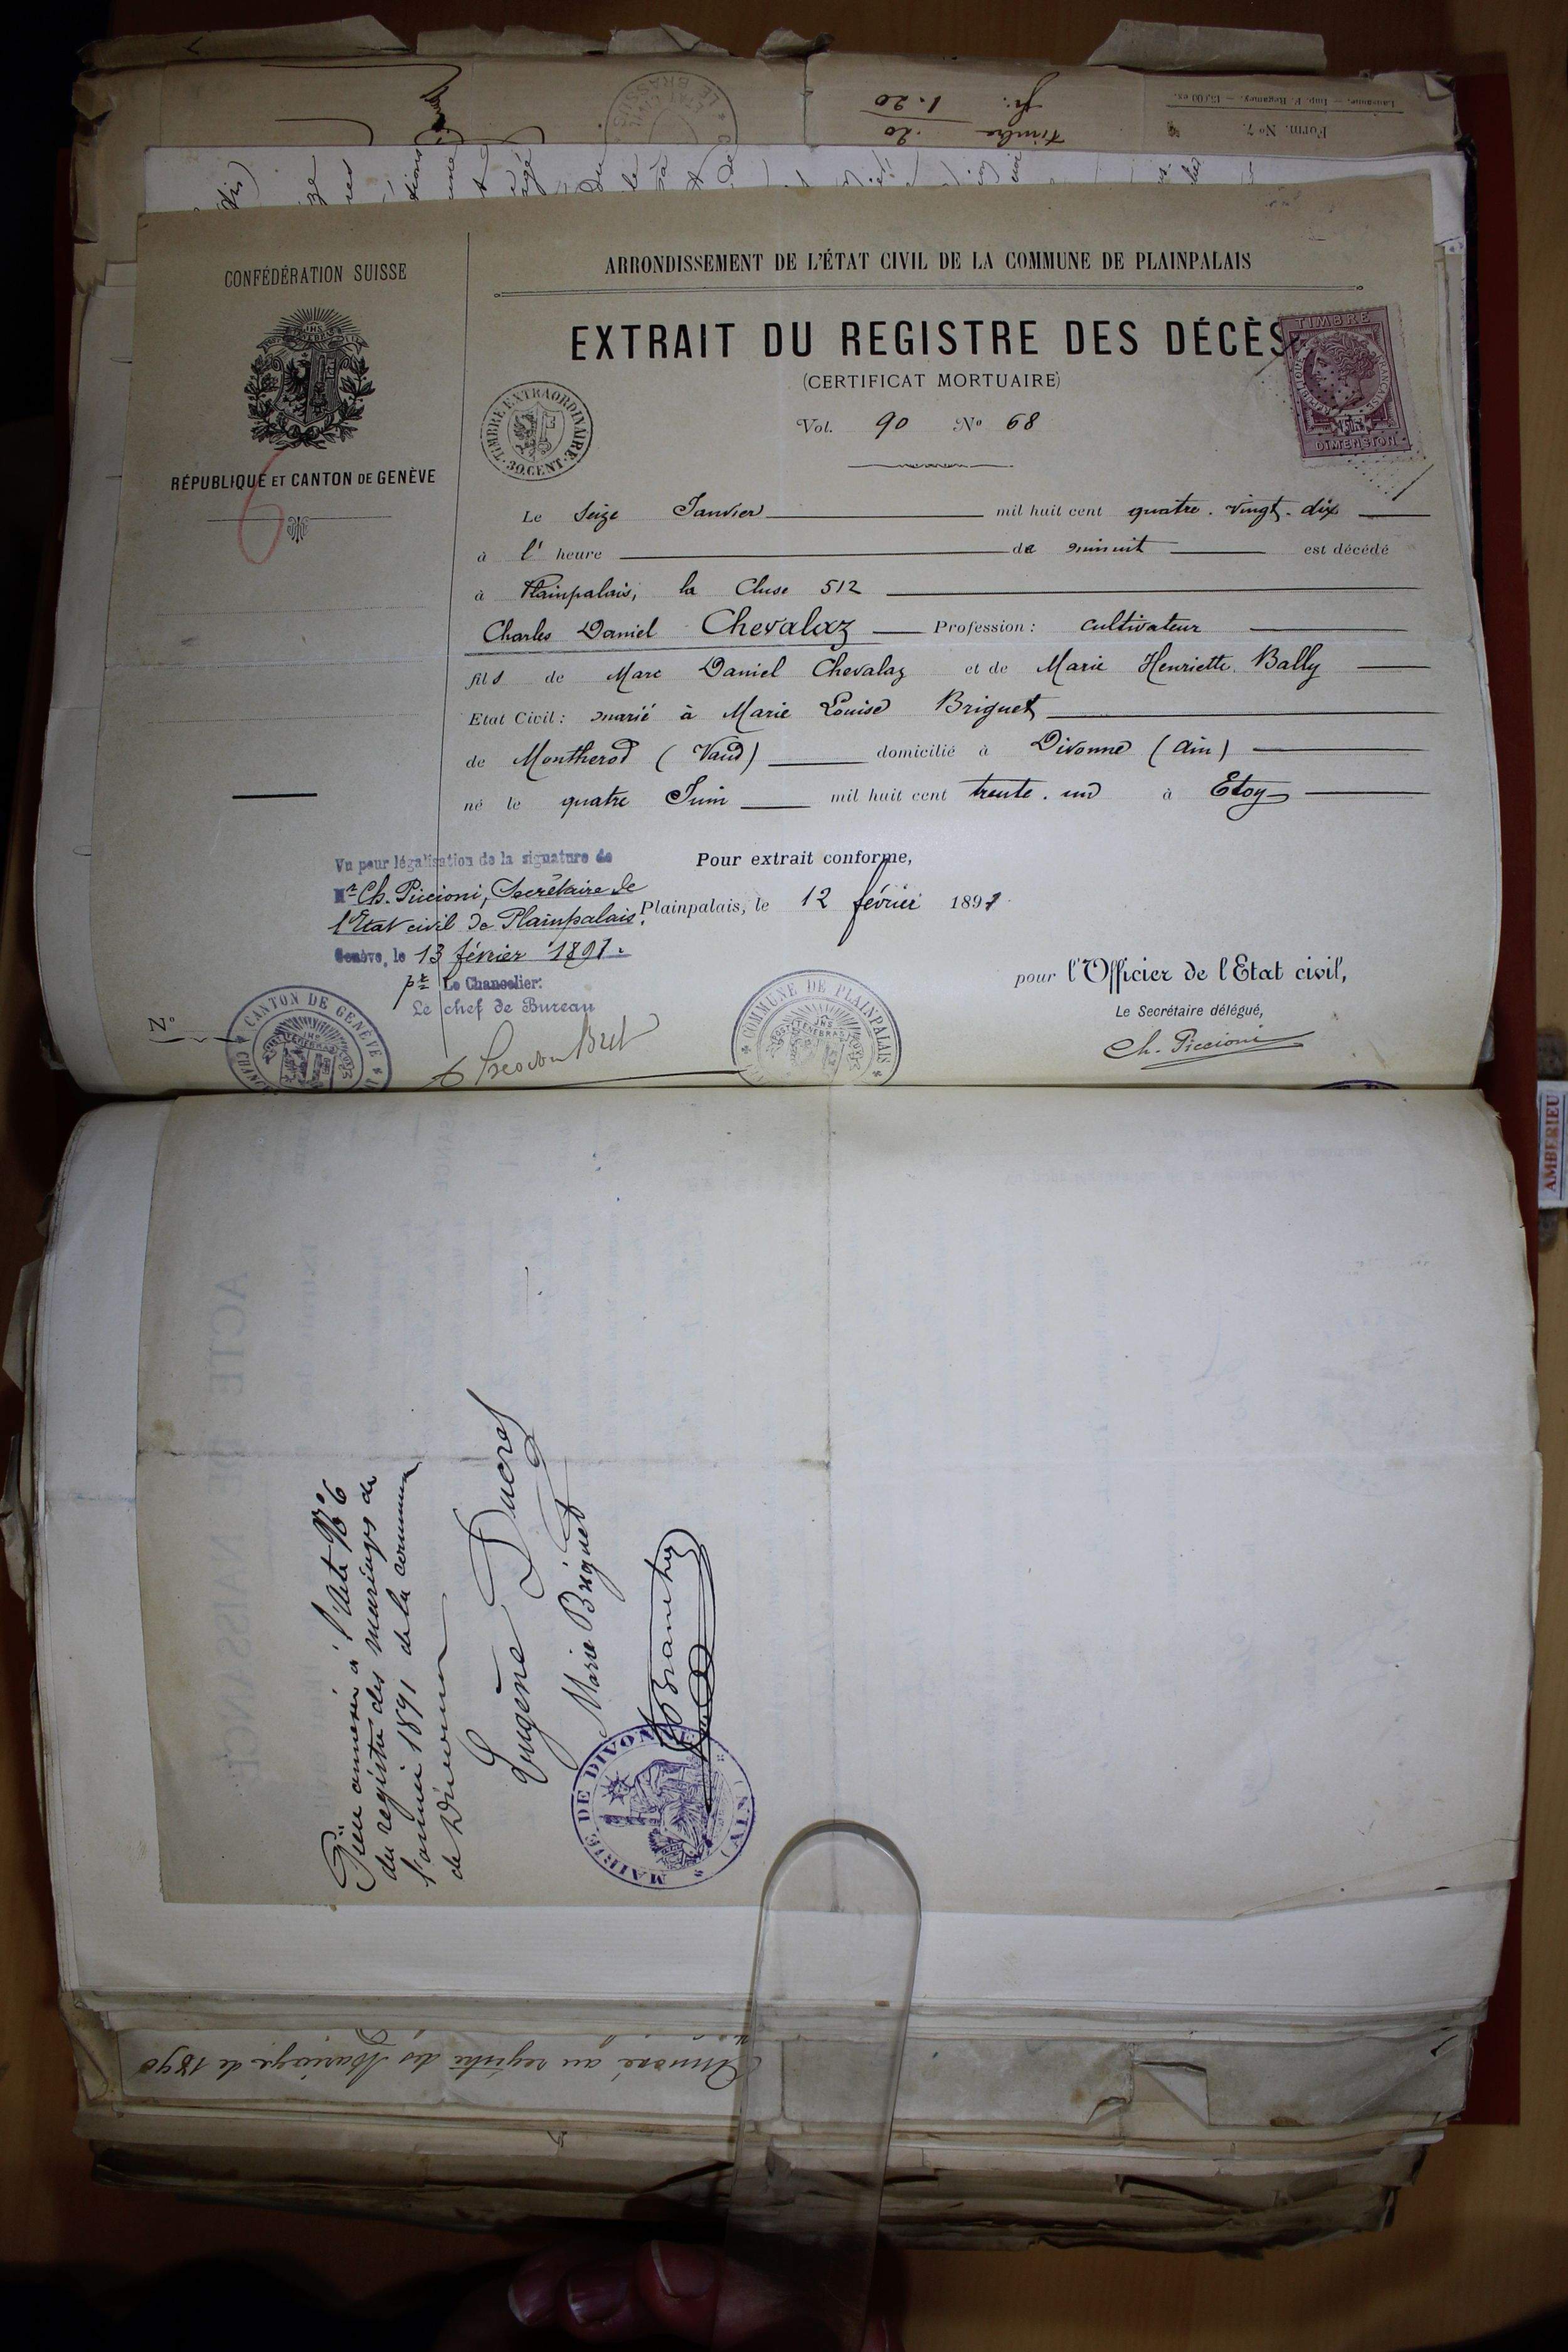 Form. No 7.
Lausanne. — Imp. F. Regamey. — 15,000 ex.
timbre 20
fr. 1.20
CONFÉDÉRATION SUISSE
RÉPUBLIQUE ET CANTON DE GENÈVE
6
ARRONDISSEMENT DE L'ÉTAT CIVIL DE LA COMMUNE DE PLAINPALAIS
EXTRAIT DU REGISTRE DES DÉCÈS
(CERTIFICAT MORTUAIRE)
TIMBRE EXTRAORDINAIRE
30.CENT.
TIMBRE
RÉPUBLIQUE FRANÇAISE
DIMENSION
Vol. 90 No 68
Le Seize Janvier mil huit cent quatre. vingt. dix
à l' heure de minuit est décédé
à Plainpalais, la Cluse 512
Charles Daniel Chevalaz Profession : cultivateur
fils de Marc Daniel Chevalaz et de Marie Henriette Bally
Etat Civil : marié à Marie Louise Briguet
de Montherod (Vaud) domicilié à Divonne (Ain)
né le quatre Juin mil huit cent trente. un à Etoy
Pour extrait conforme,
Plainpalais, le 12 février 1891.
Vu pour légalisation de la signature de
Mr Ch. Piccioni, Secrétaire de
l'Etat civil de Plainpalais.
Genève, le 13 février 1891.
pr Le Chancelier:
Le chef de Bureau
pour l'Officier de l'Etat civil,
Le Secrétaire délégué,
Ch. Piccioni
No
CANTON DE GENÈVE
COMMUNE DE PLAINPALAIS
AMBERIEU
Pièce annexée à l'Acte No 6
du registre des mariages de
l'année 1891 de la commune
de Divonne
Eugène Ducret
Marie Briguet
MAIRIE DE DIVONNE (AIN)
Annexé au registre des Mariages de 1890